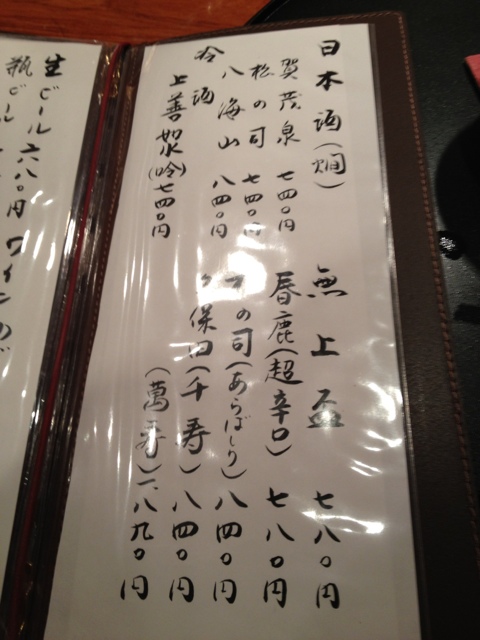 日本酒(燗)
賀茂泉 七四〇円
松の司 七四〇円
八海山 八四〇円
冷酒
上善如水(吟)七四〇円
無上盃 七八〇円
春鹿(超辛口) 七八〇円
の司(あらばしり) 八四〇円
保田(千寿) 八四〇円
(萬寿)一、八九〇円
生ビール 六八〇円
瓶ビール
ワイン